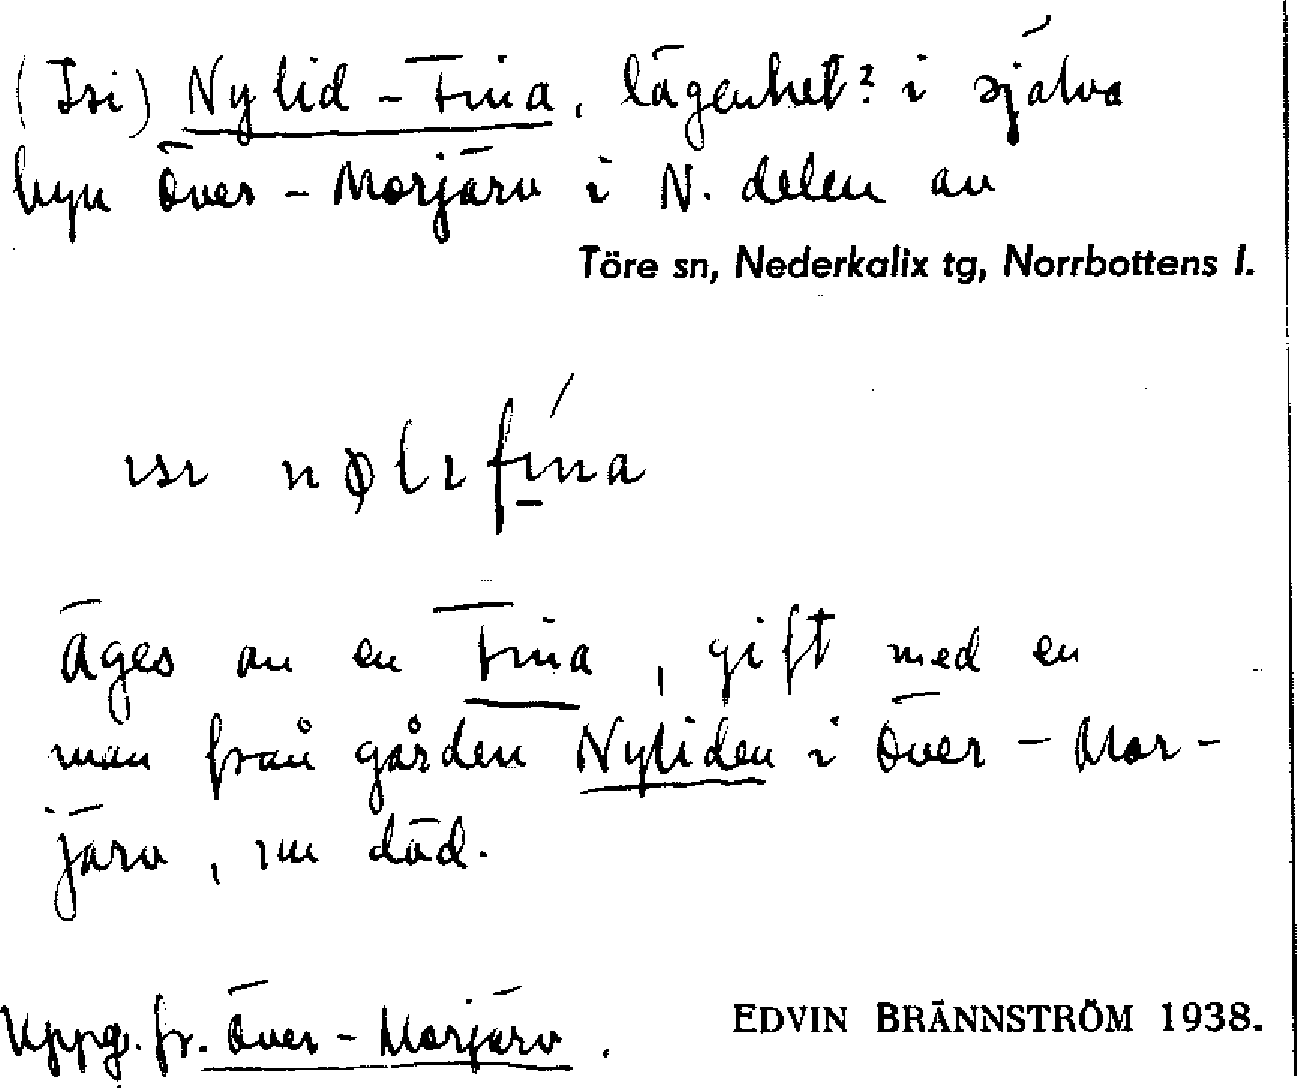 (Isi) Nylid-Fina, lägenhet? i själva
byn Över-Morjärv i N. delen av
Töre sn, Nederkalix tg, Norrbottens l.
ısı nølıfína
Äges av en Fina, gift med en
man från gården Nyliden i Över-Mor-
järv, nu död.
Uppg. fr. Över-Morjärv.
EDVIN BRÄNNSTRÖM 1938.